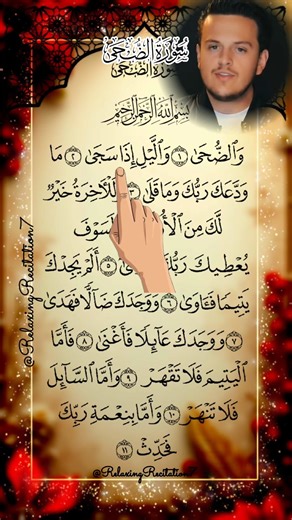 سُورَةُ الضُّحَىٰ
سُورَةُ الضُّحَىٰ
بِسْمِ اللَّهِ الرَّحْمَٰنِ الرَّحِيمِ
وَالضُّحَىٰ ١ وَاللَّيْلِ إِذَا سَجَىٰ ٢ مَا
وَدَّعَكَ رَبُّكَ وَمَا قَلَىٰ ٣ لَلْآخِرَةُ خَيْرٌ
لَّكَ مِنَ لَسَوْفَ
يُعْطِيكَ رَبُّكَ ٥ أَلَمْ يَجِدْكَ
يَتِيمًا فَـَٔاوَىٰ ٦ وَوَجَدَكَ ضَآلًّا فَهَدَىٰ
٧ وَوَجَدَكَ عَآئِلًا فَأَغْنَىٰ ٨ فَأَمَّا
الْيَتِيمَ فَلَا تَقْهَرْ ٩ وَأَمَّا السَّآئِلَ
فَلَا تَنْهَرْ ١٠ وَأَمَّا بِنِعْمَةِ رَبِّكَ
فَحَدِّثْ ١١
@RelaxingRecitation7
@RelaxingRecitation7